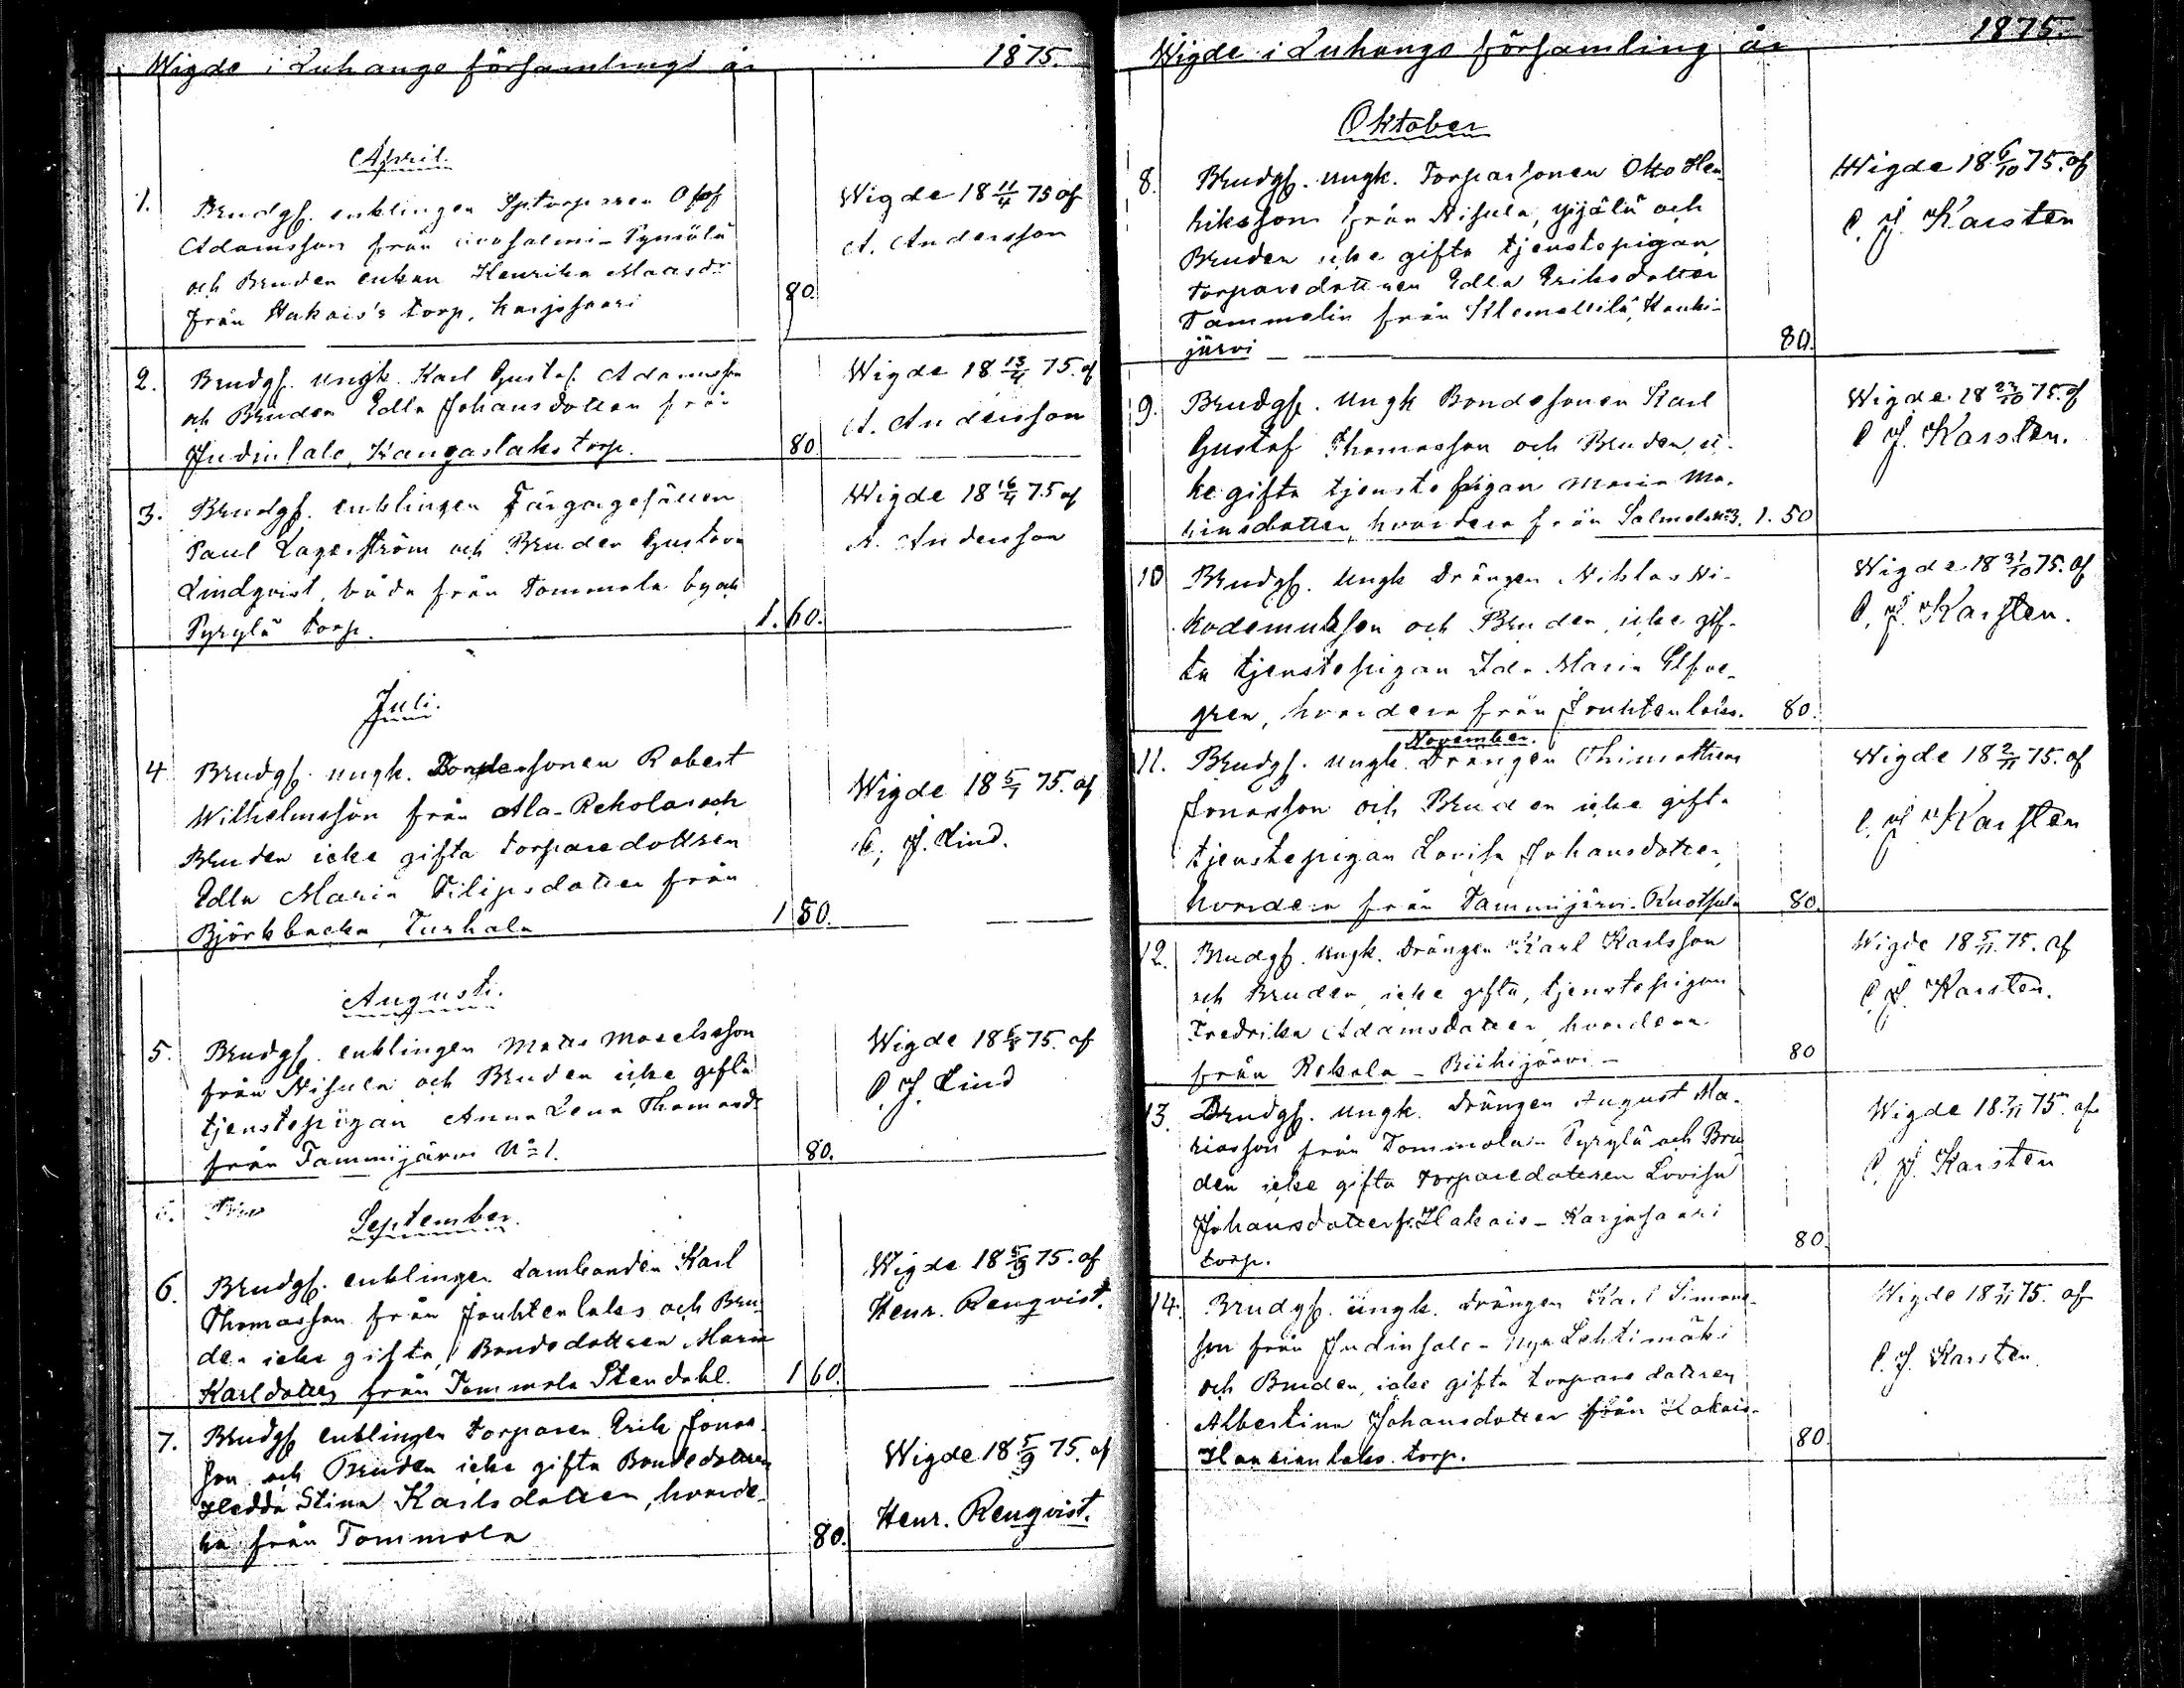 Wigde i Luhango församlings år 1875.
April.
1. Brudgl. enklingen Sptorparen Olof
Adamsson från
och Bruden enkan Henrika Maasdr
från Hakais's torp, Karjosaari 80.
Wigde 18 11/4 75 af
A. Andersson
2. Brudg. ungk. Karl Gustaf Adamsson
och Bruden Edla Johansdotter från
Judinsalo, Kangaslaks torp. 80
Wigde 18 13/4 75. af
A. Andersson
3. Brudg. enklingen Färgargesällen
Paul Lagerström och Bruden Gustava
Lindqvist, båda från Tommola by och
Pyrylä torp. 1. 60.
Wigde 18 16/4 75 af
A. Andersson
Juli.
4. Brudg. ungk. Bondesonen Robert
Wilhelmsson från Ala-Rekola och
Bruden icke gifta torparedottren
Edla Maria Filipsdotter från
Björkbacka, Turhala 1 80.
Wigde 18 5/7 75. af
C. J. Lind.
Augusti.
5. Brudg. enklingen Matts Maselsson
från Nisula och Bruden icke gifta
tjenstepigan Anna Lena Thomasdr
från Tammijärvi No 1. 80.
Wigde 18 6/8 75. af
C. J. Lind
September.
6. Brudg. enklingen Landbonden Karl
Thomasson från Jouhtenlaks och Bru-
den icke gifta, Bondedottren Maria
Karlsdotter från Tommola Stendahl. 1 60.
Wigde 18 5/9 75. af
Henr. Renqvist.
7. Brudg. enklingen torparen Erik Jonas-
son och Bruden icke gifta Bondedottren
Hedda Stina Karlsdotter, hvarde-
ra från Tommola 80.
Wigde 18 5/9 75. af
Henr. Renqvist.
Wigde i Luhango församling år 1875.
Oktober
8. Brudg. ungk. Torparsonen Otto Hen-
riksson från Nisula, Yijälä och
Bruden icke gifta tjenstepigan
torparedottren Edla Eriksdotter
Tammelin från Klemettilä, Kauki-
järvi 80.
Wigde 18 6/10 75. af
C. J. Karsten
9. Brudg. Ungk Bondesonen Karl
Gustaf Thomasson och Bruden, ic-
ke gifta tjenstepigan Maria Ma-
tinsdotter, hvardera från Salmela No 3. 1. 50
Wigde 18 23/10 75. af
C. J. Karsten.
10 Brudg. Ungk Drängen Niklas Ni-
kodemusson och Bruden, icke gif-
ta tjenstepigan Ida Maria Elfve-
gren, hvardera från Jouhtenlaks. 80.
Wigde 18 31/10 75. af
C. J. Karsten.
November.
11. Brudg. Ungk. Drängen Thimotheus
Jonasson och Bruden icke gifta
tjenstepigan Lovisa Johansdotter,
hvardera från Tammijärvi-Ruotsula 80.
Wigde 18 2/11 75. af
C. J. Karsten
12. Brudg. ungk. Drängen Karl Karlsson
och Bruden, icke gifta, tjenstepigan
Fredrika Adamsdotter, hvardera
från Rekola - Riihijärvi - 80
Wigde 18 5/11 75. af
C. J. Karsten.
13. Brudg. ungk. Drängen August Ma-
riasson från Tommola - Pyrylä och Bru-
den icke gifta torparedottren Lovisa
Johansdotter fr. Hakais - Karjosaari
torp. 80.
Wigde 18 7/11 75. af
C. J. Karsten
14. Brudg. ungk. Drängen Karl Simons-
son från Judinsalo - Nya Lehtimäki
och Bruden, icke gifta torpare dottren
Albertina Johansdotter från Hakais-
Hansinlaks torp. 80.
Wigde 18 7/11 75. af
C. J. Karsten.